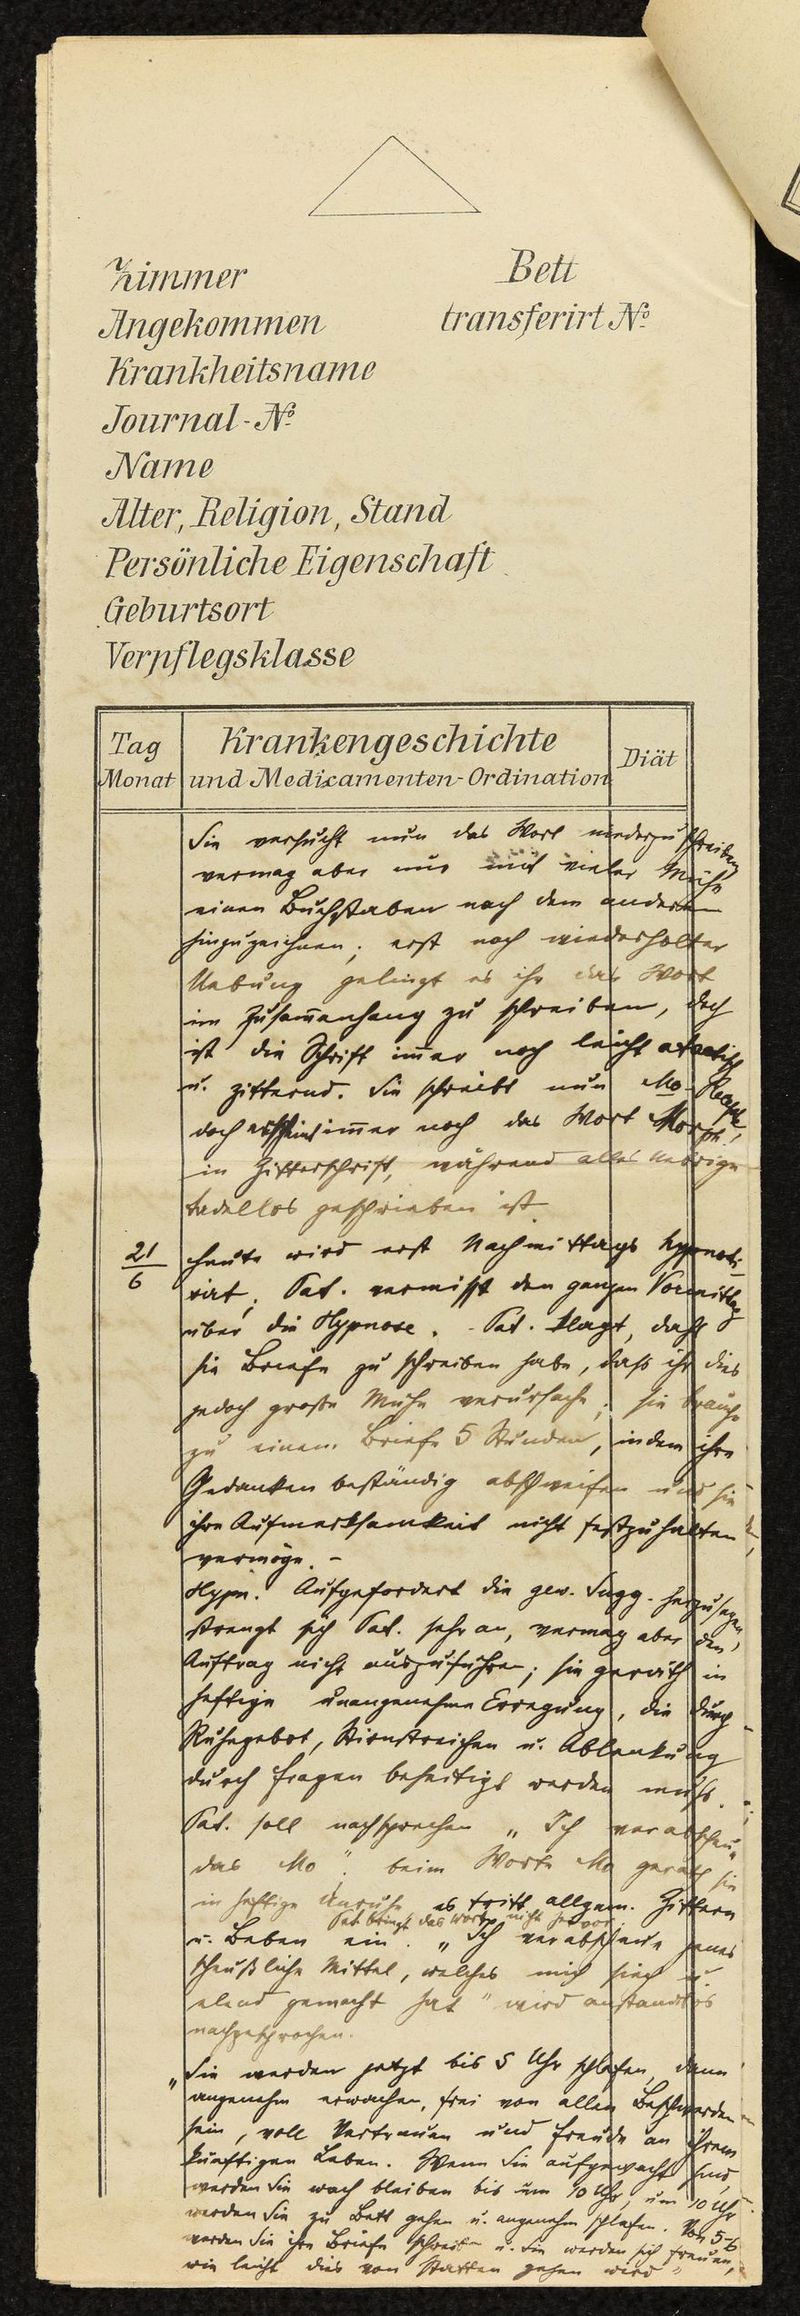 Zimmer Bett
Angekommen transferirt No.
Krankheitsname
Journal-No.
Name
Alter, Religion, Stand
Persönliche Eigenschaft
Geburtsort
Verpflegsklasse
Tag Monat
Krankengeschichte
und Medicamenten-Ordination
Diät
Sie versucht nun das Wort niederzuschreiben
vermag aber nur mit vieler Mühe
einen Buchstaben nach dem anderen
hinzuzeichnen; erst nach wiederholter
Uebung gelingt es ihr das Wort
im Zusam̄enhang zu schreiben, doch
ist die Schrift im̄er noch leicht atactisch
u. zitternd. Sie schreibt nun Mo-Recepte,
doch erscheint im̄er noch das Wort Morph.
in Zitterschrift, während alles Uebrige
tadellos geschrieben ist.
21/6 Heute wird erst Nachmittags hypnoti-
sirt; Pat. vermisst den ganzen Vormittag
über die Hypnose. - Pat. klagt, daß
sie Briefe zu schreiben habe, daß ihr dies
jedoch große Mühe verursache; sie brauche
zu einem Briefe 5 Stunden, indem ihre
Gedanken beständig abschweifen und sie
ihre Aufmerksamkeit nicht festzuhalten
vermöge. -
Hypn. Aufgefordert die gew. Sugg. herzusagen,
strengt sich Pat. sehr an, vermag aber den
Auftrag nicht auszuführen; sie geräth in
heftige unangenehme Erregung, die durch
Ruhegebot, Stirnstreichen u. Ablenkung
durch Fragen beseitigt werden muß.
Pat. soll nachsprechen „Ich verabscheue
das Mo“. beim Worte Mo geräth sie
in heftige Unruhe es tritt allgem. Zittern
Pat bringt das Wort nicht hervor
u. Beben ein. „Ich verabscheue jenes
scheußliche Mittel, welches mich siech u.
elend gemacht hat“ wird anstandslos
nachgesprochen.
„Sie werden jetzt bis 5 Uhr schlafen, dann
angenehm erwachen, frei von allen Beschwerden
sein, voll Vertrauen und Freude an ihrem
künftigen Leben. Wenn Sie aufgewacht sind,
werden Sie wach bleiben bis um 10 Uhr, um 10 Uhr
werden Sie zu Bett gehen u. angenehm schlafen. Von 5-6
werden Sie ihre Briefe schreiben u. Sie werden sich freuen,
wie leicht dies von Statten gehen wird“